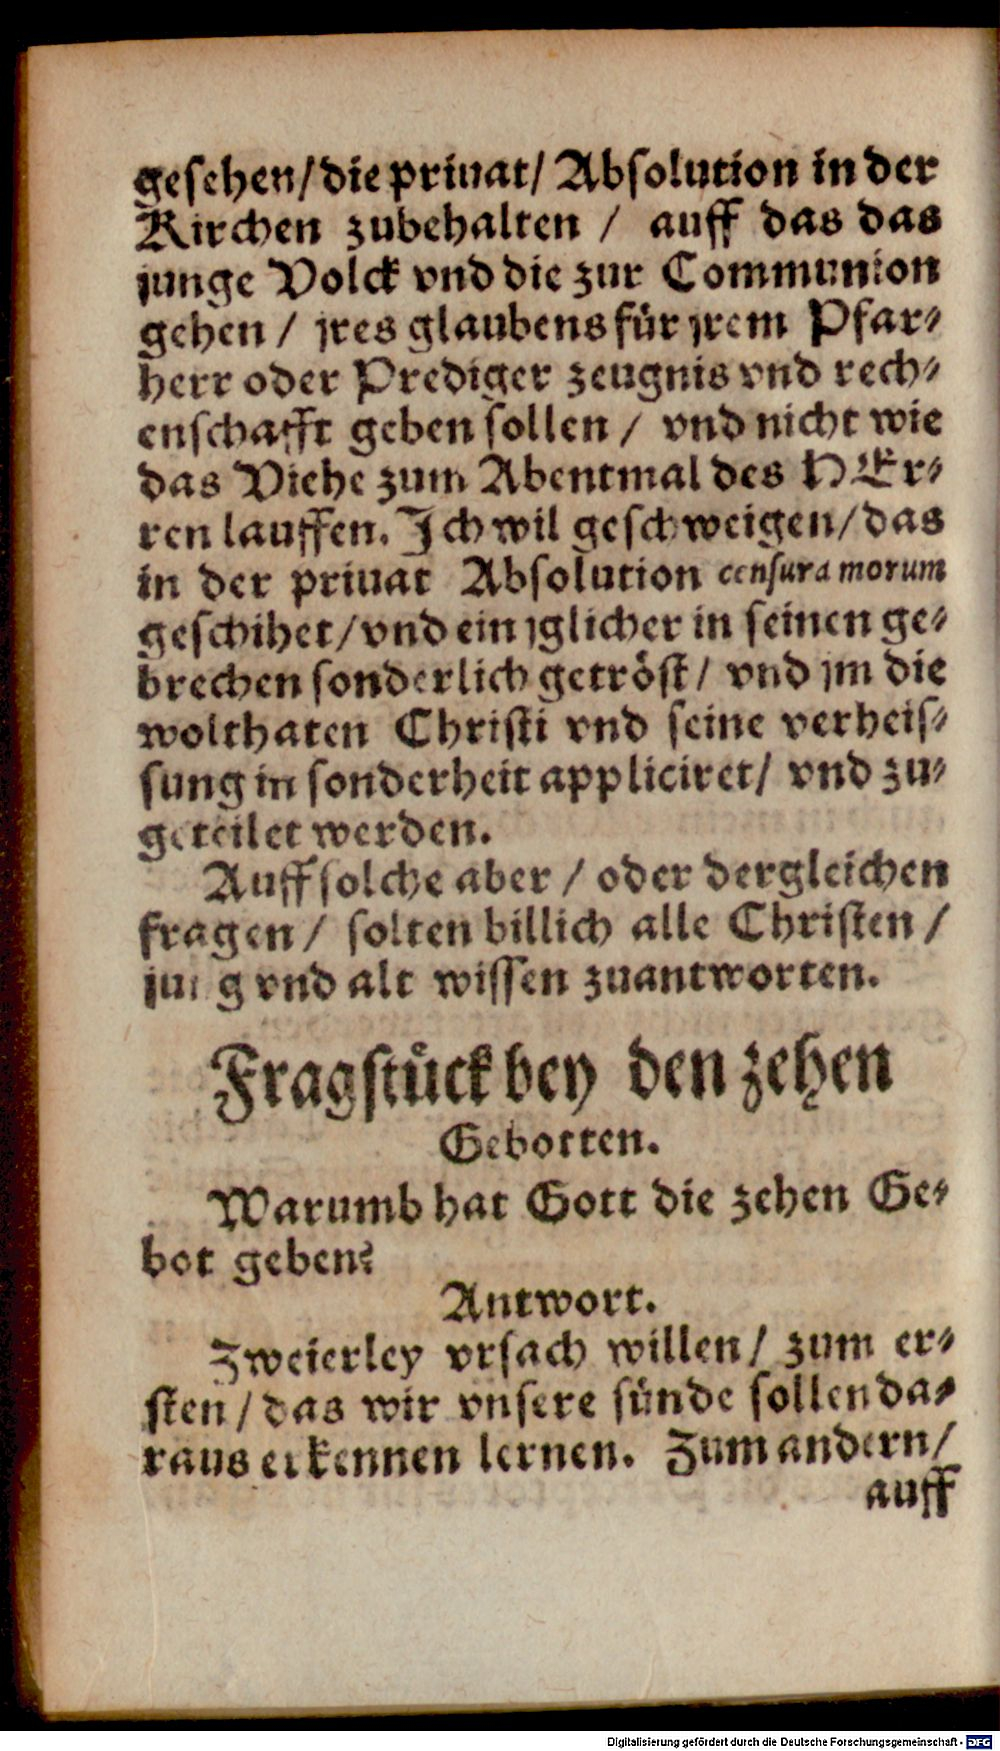 gesehen/ die priuat/ Absolution in der
Kirchen zubehalten / auff das das
junge Volck vnd die zur Communion
gehen / jres glaubens für jrem Pfar-
herr oder Prediger zeugnis vnd rech-
enschafft geben sollen / vnd nicht wie
das Viehe zum Abentmal des HEr-
ren lauffen. Ich wil geschweigen/ das
in der priuat Absolution censura morum
geschihet/ vnd ein jglicher in seinen ge-
brechen sonderlich getröst/ vnd jm die
wolthaten Christi vnd seine verheis-
sung in sonderheit appliciret/ vnd zu-
geteilet werden.
Auff solche aber / oder dergleichen
fragen / solten billich alle Christen /
jung vnd alt wissen zuantworten.
Fragstück bey den zehen
Gebotten.
Warumb hat Gott die zehen Ge-
bot geben?
Antwort.
Zweierley vrsach willen/ zum er-
sten / das wir vnsere sünde sollen da-
raus erkennen lernen. Zum andern/
auff
Digitalisierung gefördert durch die Deutsche Forschungsgemeinschaft - DFG